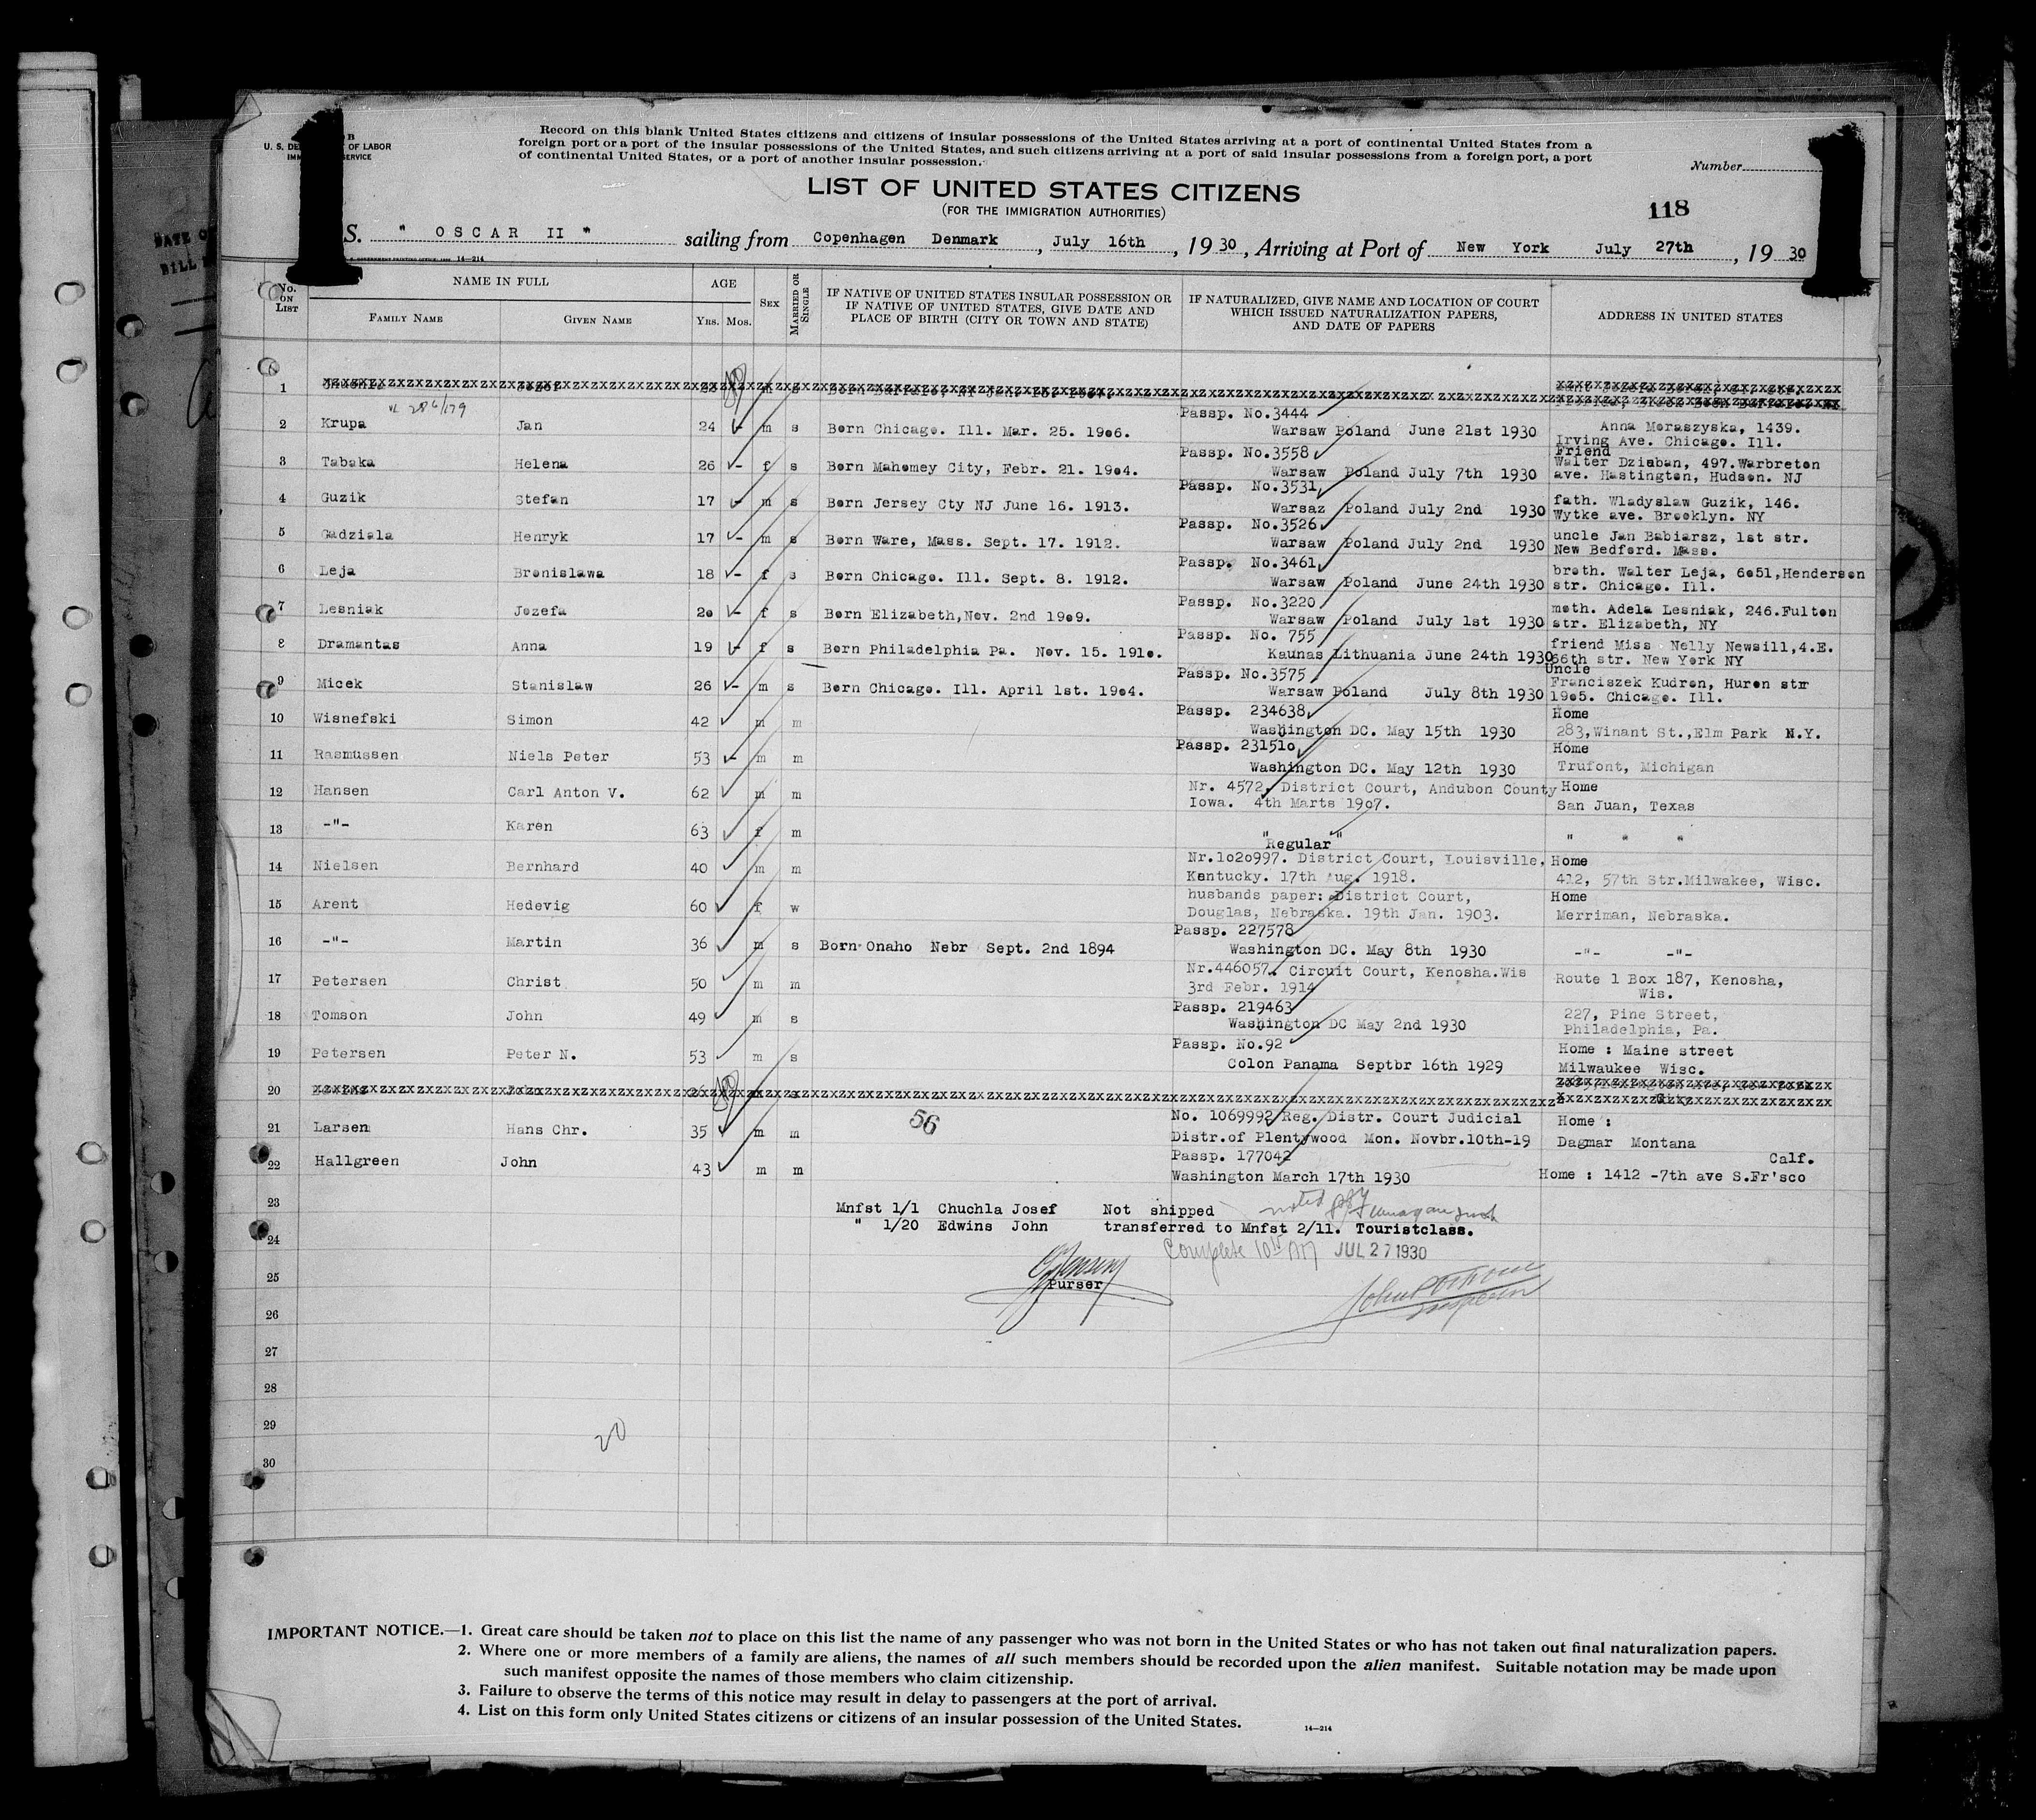 U. S. DE OF LABOR
IMM SERVICE
Record on this blank United States citizens and citizens of insular possessions of the United States arriving at a port of continental United States from a
foreign port or a port of the insular possessions of the United States, and such citizens arriving at a port of said insular possessions from a foreign port, a port
of continental United States, or a port of another insular possession.
Number
LIST OF UNITED STATES CITIZENS
(FOR THE IMMIGRATION AUTHORITIES)
118
S. " OSCAR II " sailing from Copenhagen Denmark, July 16th, 1930, Arriving at Port of New York July 27th, 1930
14—214
No. ON LIST
NAME IN FULL
FAMILY NAME GIVEN NAME
AGE
YRS. MOS.
SEX
MARRIED OR SINGLE
IF NATIVE OF UNITED STATES INSULAR POSSESSION OR
IF NATIVE OF UNITED STATES, GIVE DATE AND
PLACE OF BIRTH (CITY OR TOWN AND STATE)
IF NATURALIZED, GIVE NAME AND LOCATION OF COURT
WHICH ISSUED NATURALIZATION PAPERS,
AND DATE OF PAPERS
ADDRESS IN UNITED STATES
1
286/179
Passp. No.3444
2 Krupa Jan 24 - m s Born Chicago. Ill. Mar. 25. 19o6. Warsaw Poland June 21st 1930 Anna Moraszyska, 1439.
Irving Ave. Chicago. Ill.
Passp. No.3558 Friend
3 Tabaka Helena 26 - f s Born Mahomey City, Febr. 21. 19o4. Warsaw Poland July 7th 1930 Walter Dziaban, 497.Warbreton
ave. Hastington, Hudson. NJ
Passp. No.3531
4 Guzik Stefan 17 - m s Born Jersey Cty NJ June 16. 1913. Warsaz Poland July 2nd 1930 fath. Wladyslaw Guzik, 146.
Wytke ave. Brooklyn. NY
Passp. No.3526
5 Gadziala Henryk 17 - m s Born Ware, Mass. Sept. 17. 1912. Warsaw Poland July 2nd 1930 uncle Jan Babiarsz, 1st str.
New Bedford. Mass.
Passp. No.3461
6 Leja Bronislawa 18 - f s Born Chicago. Ill. Sept. 8. 1912. Warsaw Poland June 24th 1930 broth. Walter Leja, 6o51,Henderson
str. Chicago. Ill.
Passp. No.3220
7 Lesniak Jozefa 2o - f s Born Elizabeth,Nov. 2nd 19o9. Warsaw Poland July 1st 1930 moth. Adela Lesniak, 246.Fulton
str. Elizabeth, NY
Passp. No. 755
8 Dramantas Anna 19 - f s Born Philadelphia Pa. Nov. 15. 191o. Kaunas Lithuania June 24th 1930 friend Miss Nelly Newsill,4.E.
66th str. New York NY
Passp. No.3575 Uncle
9 Micek Stanislaw 26 - m s Born Chicago. Ill. April 1st. 19o4. Warsaw Poland July 8th 1930 Franciszek Kudron, Huron str
19o5. Chicago. Ill.
Passp. 234638 Home
10 Wisnefski Simon 42 m m Washington DC. May 15th 1930 283,Winant St.,Elm Park N.Y.
Passp. 23151o Home
11 Rasmussen Niels Peter 53 - m m Washington DC. May 12th 1930 Trufont, Michigan
12 Hansen Carl Anton V. 62 m m Nr. 4572. District Court, Andubon County Home
Iowa. 4th Marts 19o7. San Juan, Texas
13 -"- Karen 63 f m " " "
"Regular"
14 Nielsen Bernhard 40 m m Nr.1o2o997. District Court, Louisville, Home
Kentucky. 17th Aug. 1918. 412, 57th Str.Milwakee, Wisc.
15 Arent Hedevig 60 f w husbands paper: District Court, Home
Douglas, Nebraska. 19th Jan. 1903. Merriman, Nebraska.
Passp. 227578
16 -"- Martin 36 m s Born Onaho Nebr Sept. 2nd 1894 Washington DC. May 8th 1930 -"- -"-
17 Petersen Christ 50 m m Nr.446057. Circuit Court, Kenosha.Wis Route 1 Box 187, Kenosha,
3rd Febr. 1914 Wis.
Passp. 219463
18 Tomson John 49 m s Washington DC May 2nd 1930 227, Pine Street,
Philadelphia, Pa.
Passp. No.92
19 Petersen Peter N. 53 m s Colon Panama Septbr 16th 1929 Home : Maine street
Milwaukee Wisc.
20
56
21 Larsen Hans Chr. 35 m m No. 1069992 Reg. Distr. Court Judicial Home :
Distr.of Plentywood Mon. Novbr.10th-19 Dagmar Montana
Passp. 177042 Calf.
22 Hallgreen John 43 m m Washington March 17th 1930 Home : 1412 -7th ave S.Fr'sco
23 Mnfst 1/1 Chuchla Josef Not shipped noted
" 1/20 Edwins John transferred to Mnfst 2/11. Touristclass.
24
Complete 10 AM JUL 27 1930
25
Purser
26
27
28
29
20
30
IMPORTANT NOTICE.—1. Great care should be taken not to place on this list the name of any passenger who was not born in the United States or who has not taken out final naturalization papers.
2. Where one or more members of a family are aliens, the names of all such members should be recorded upon the alien manifest. Suitable notation may be made upon
such manifest opposite the names of those members who claim citizenship.
3. Failure to observe the terms of this notice may result in delay to passengers at the port of arrival.
4. List on this form only United States citizens or citizens of an insular possession of the United States.
14—214